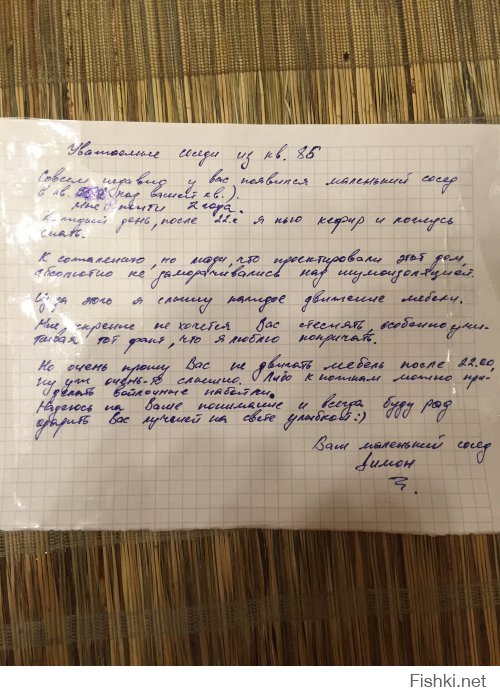 Уважаемые соседи из кв. 85
Совсем недавно у вас появился маленький сосед
(в кв. над вашей кв.).
Мне почти 2 года.
Каждый день, после 22.00 я пью кефир и ложусь
спать.
К сожалению, но люди, что проектировали этот дом,
абсолютно не заморачивались над шумоизоляцией.
Из за этого я слышу каждое движение мебели.
Мне, искренне не хочется Вас стеснять, особенно учи-
тывая тот факт, что я люблю покричать.
Но очень прошу Вас не двигать мебель после 22.00,
ну уж очень-то слышно. Либо к ножкам можно при-
делать войлочные набойки.
Надеюсь на Ваше понимание и всегда буду рад
одарить Вас лучшей на свете улыбкой :)
Ваш маленький сосед
Димон
Fishki.net